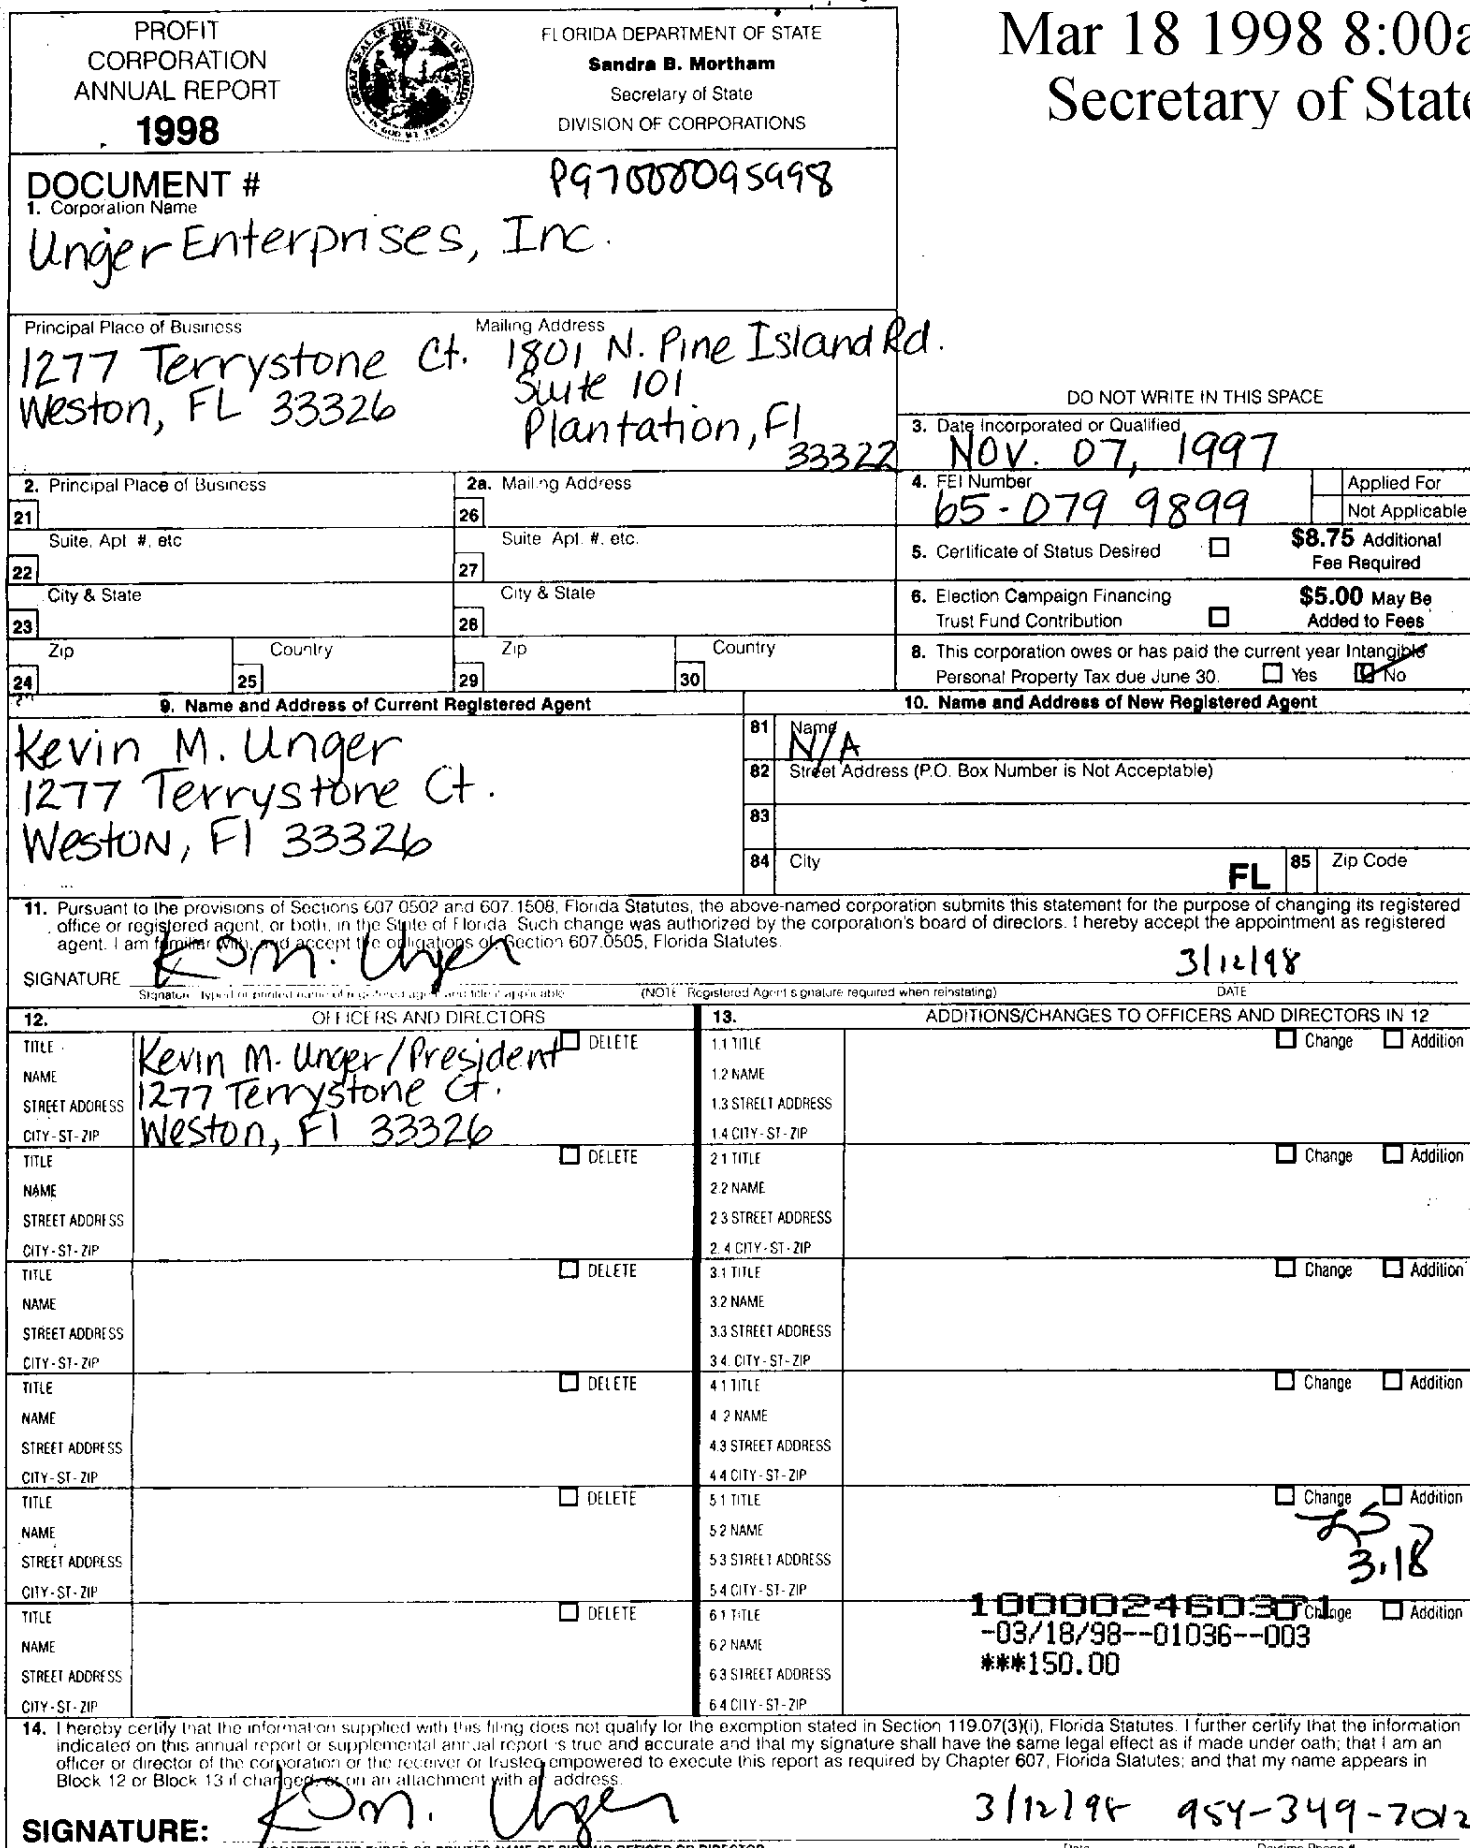 PROFIT
CORPORATION
ANNUAL REPORT
1998
FLORIDA DEPARTMENT OF STATE
Sandra B. Mortham
Secretary of State
DIVISION OF CORPORATIONS
Mar 18 1998 8:00a
Secretary of State
DOCUMENT # P97000095998
1. Corporation Name
Unger Enterprises, Inc.
Principal Place of Business
1277 Terrystone Ct.
Weston, FL 33326
Mailing Address
1801 N. Pine Island Rd.
Suite 101
Plantation, Fl
33322
DO NOT WRITE IN THIS SPACE
3. Date Incorporated or Qualified
NOV. 07, 1997
2. Principal Place of Business
21
Suite, Apt #, etc
22
City & State
23
Zip
24
Country
25
2a. Mailing Address
26
Suite Apt. #, etc.
27
City & State
28
Zip
29
Country
30
4. FEI Number
65-079 9899
Applied For
Not Applicable
5. Certificate of Status Desired
$8.75 Additional
Fee Required
6. Election Campaign Financing
Trust Fund Contribution
$5.00 May Be
Added to Fees
8. This corporation owes or has paid the current year Intangible
Personal Property Tax due June 30. Yes No
9. Name and Address of Current Registered Agent
Kevin M. Unger
1277 Terrystone Ct.
Weston, Fl 33326
10. Name and Address of New Registered Agent
81 Name
N/A
82 Street Address (P.O. Box Number is Not Acceptable)
83
84 City
FL
85 Zip Code
11. Pursuant to the provisions of Sections 607.0502 and 607.1508, Florida Statutes, the above-named corporation submits this statement for the purpose of changing its registered
office or registered agent, or both, in the State of Florida. Such change was authorized by the corporation's board of directors. I hereby accept the appointment as registered
agent. I am familiar with, and accept the obligations of, Section 607.0505, Florida Statutes.
SIGNATURE K M. Unger 3/12/98
Signature, typed or printed name of registered agent and title if applicable (NOTE Registered Agent signature required when reinstating) DATE
12. OFFICERS AND DIRECTORS
TITLE
NAME
STREET ADDRESS
CITY-ST-ZIP
Kevin M. Unger/President
1277 Terrystone Ct.
Weston, Fl 33326
DELETE
TITLE DELETE
NAME
STREET ADDRESS
CITY-ST-ZIP
TITLE DELETE
NAME
STREET ADDRESS
CITY-ST-ZIP
TITLE DELETE
NAME
STREET ADDRESS
CITY-ST-ZIP
TITLE DELETE
NAME
STREET ADDRESS
CITY-ST-ZIP
TITLE DELETE
NAME
STREET ADDRESS
CITY-ST-ZIP
13. ADDITIONS/CHANGES TO OFFICERS AND DIRECTORS IN 12
1.1 TITLE Change Addition
1.2 NAME
1.3 STREET ADDRESS
1.4 CITY-ST-ZIP
2.1 TITLE Change Addition
2.2 NAME
2.3 STREET ADDRESS
2.4 CITY-ST-ZIP
3.1 TITLE Change Addition
3.2 NAME
3.3 STREET ADDRESS
3.4. CITY-ST-ZIP
4.1 TITLE Change Addition
4.2 NAME
4.3 STREET ADDRESS
4.4 CITY-ST-ZIP
5.1 TITLE Change Addition
5.2 NAME
5.3 STREET ADDRESS
3.18
5.4 CITY-ST-ZIP
100002460371
6.1 TITLE Change Addition
-03/18/98--01036--003
6.2 NAME
***150.00
6.3 STREET ADDRESS
6.4 CITY-ST-ZIP
14. I hereby certify that the information supplied with this filing does not qualify for the exemption stated in Section 119.07(3)(i), Florida Statutes. I further certify that the information
indicated on this annual report or supplemental annual report is true and accurate and that my signature shall have the same legal effect as if made under oath; that I am an
officer or director of the corporation or the receiver or trustee empowered to execute this report as required by Chapter 607, Florida Statutes; and that my name appears in
Block 12 or Block 13 if changed, or on an attachment with an address.
SIGNATURE: K M. Unger 3/12/98 954-349-7012